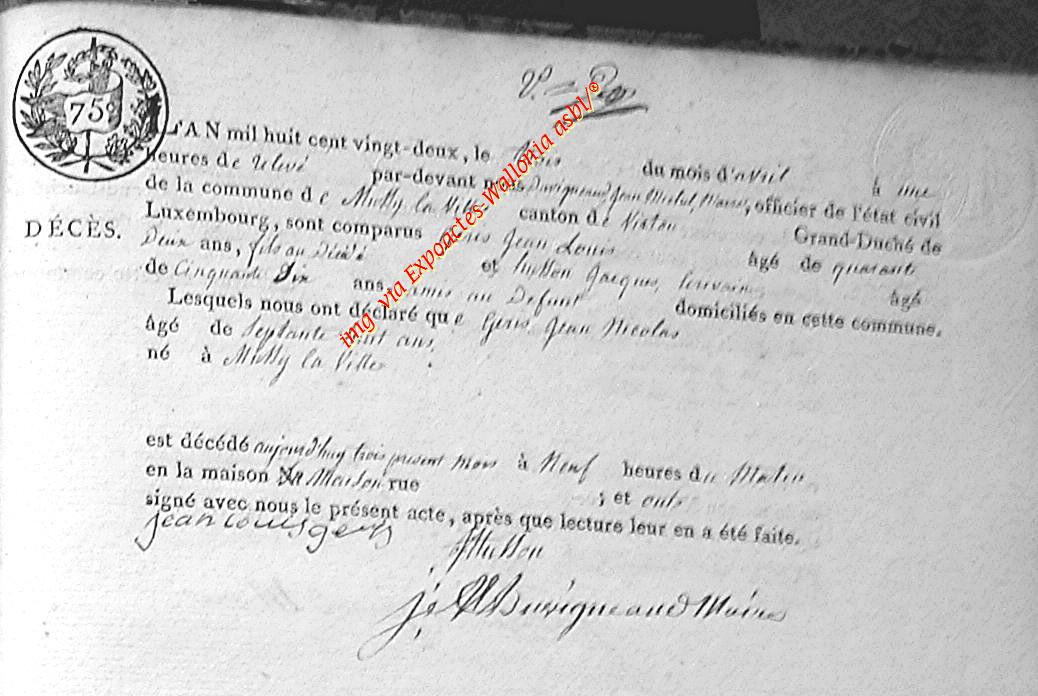 75c
L'AN mil huit cent vingt-deux, le trois du mois d'avril à une
heures de relevé par-devant nous Duvigneaud Jean Michel, Maire, officier de l'état civil
de la commune de Mussy la Ville canton de Virton Grand-Duché de
Luxembourg, sont comparus Jean Louis âgé de quarante
DÉCÈS.
Deux ans, fils au Décédé et husson Jacques, âgé
de Cinquante Six ans, amis au Defunt domiciliés en cette commune.
Lesquels nous ont déclaré que Jean Nicolas
âgé de Septante ans,
né à Mussy la Ville
est décédé aujourd'huy trois présent mois à Neuf heures du Matin
en la maison rue ; et ont
signé avec nous le présent acte, après que lecture leur en a été faite.
jean louis
Husson
Duvigneaud Maire
img via Expoactes-Wallonia asbl/©